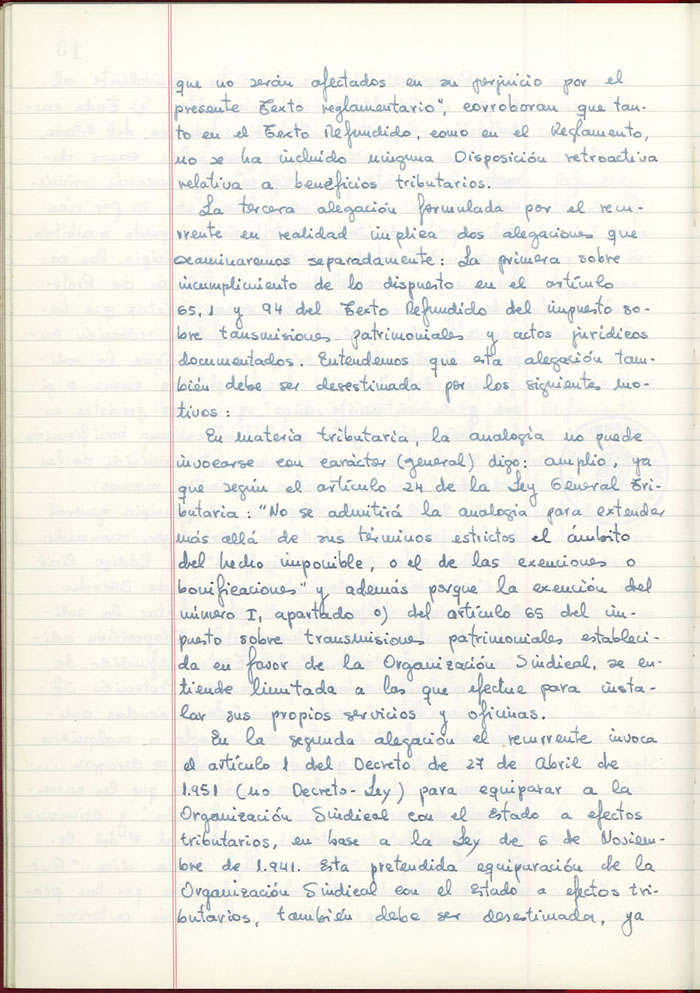 que no serán afectados en su perjuicio por el
presente Texto reglamentario", corroboran que tan-
to en el Texto Refundido, como en el Reglamento,
no se ha incluido ninguna Disposición retroactiva
relativa a beneficios tributarios.
La tercera alegación formulada por el recu-
rrente en realidad implica dos alegaciones que
examinaremos separadamente: La primera sobre
incumplimiento de lo dispuesto en el artículo
65,1 y 94 del Texto Refundido del impuesto so-
bre tansmisiones patrimoniales y actos jurídicos
documentados. Entendemos que esta alegación tam-
bién debe ser desestimada por los siguientes mo-
tivos:
En materia tributaria, la analogía no puede
invocarse con carácter (general) digo: amplio, ya
que según el artículo 24 de la Ley General Tri-
butaria: "No se admitirá la analogía para extender
más allá de sus términos estrictos el ámbito
del hecho imponible, o el de las exenciones o
bonificaciones" y además porque la exención del
número I, apartado º) del artículo 65 del im-
puesto sobre transmisiones patrimoniales estableci-
da en favor de la Organización Sindical, se en-
tiende limitada a las que efectue para insta-
lar sus propios servicios y oficinas.
En la segunda alegación el recurrente invoca
el artículo 1 del Decreto de 27 de Abril de
1.951 (no Decreto-Ley) para equiparar a la
Organización Sindical con el Estado a efectos
tributarios, en base a la Ley de 6 de Noviem-
bre de 1.941. Esta pretendida equiparación de la
Organización Sindical con el Estado a efectos tri-
butarios, también debe ser desestimada, ya